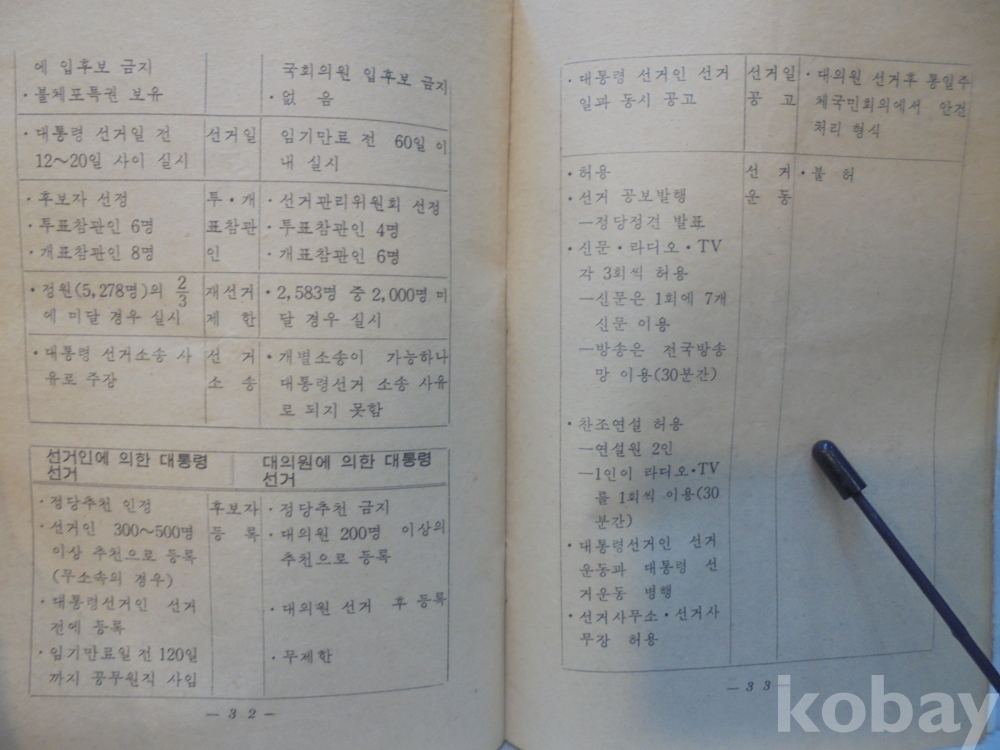 에 입후보 금지
· 불체포특권 보유
국회의원 입후보 금지
· 없 음
· 대통령 선거일 전
12~20일 사이 실시
선거일
임기만료 전 60일 이
내 실시
· 후보자 선정
· 투표참관인 6명
· 개표참관인 8명
투·개
표참관
인
· 선거관리위원회 선정
· 투표참관인 4명
· 개표참관인 6명
· 정원(5,278명)의 2/3
에 미달 경우 실시
재선거
제 한
· 2,583명 중 2,000명 미
달 경우 실시
· 대통령 선거소송 사
유로 주장
선 거
소 송
· 개별소송이 가능하나
대통령선거 소송 사유
로 되지 못함
선거인에 의한 대통령
선거
대의원에 의한 대통령
선거
· 정당추천 인정
· 선거인 300~500명
이상 추천으로 등록
(무소속의 경우)
· 대통령선거인 선거
전에 등록
· 임기만료일 전 120일
까지 공무원직 사임
후보자
등 록
· 정당추천 금지
· 대의원 200명 이상의
추천으로 등록
· 대의원 선거 후 등록
· 무제한
— 3 2 —
· 대통령 선거인 선거
일과 동시 공고
선거일
공 고
· 대의원 선거후 통일주
체국민회의에서 안건
처리 형식
· 허용
· 선거 공보발행
—정당정견 발표
· 신문·라디오·TV
각 3회씩 허용
—신문은 1회에 7개
신문 이용
—방송은 전국방송
망 이용(30분간)
· 찬조연설 허용
—연설원 2인
—1인이 라디오·TV
를 1회씩 이용(30
분간)
· 대통령선거인 선거
운동과 대통령 선
거운동 병행
· 선거사무소·선거사
무장 허용
선 거
운 동
· 불 허
— 3 3
kobay